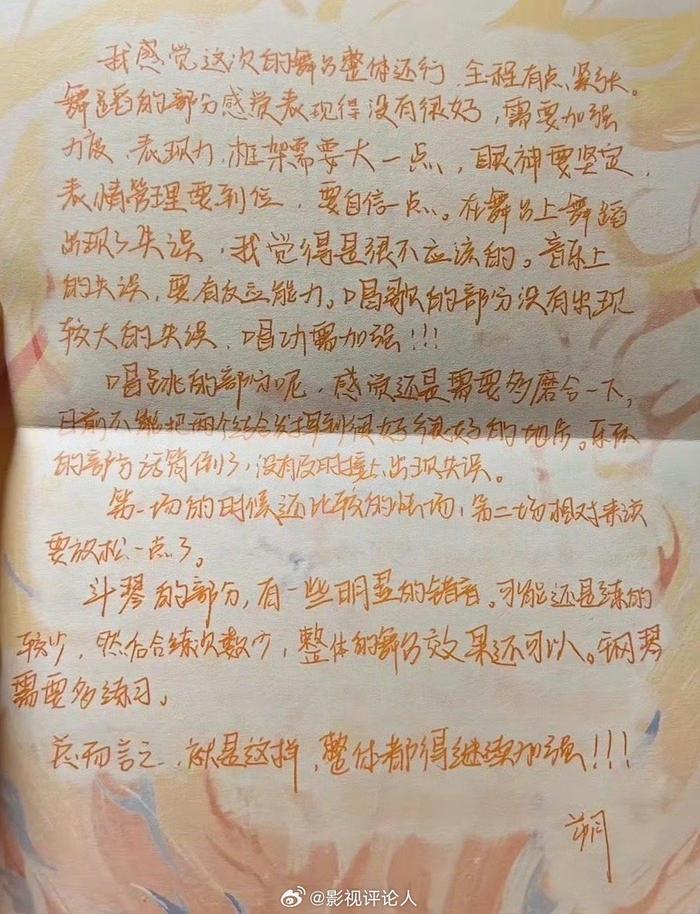 我感觉这次的舞台整体还行,全程有点紧张。
舞蹈的部分感觉表现得没有很好,需要加强
力度、表现力,框架需要大一点,眼神要坚定,
表情管理要到位,要自信一点。在舞台上舞蹈
出现了失误,我觉得是很不应该的。音乐上
的失误,要有反应能力。唱歌的部分没有出现
较大的失误,唱功需加强!!!
唱跳的部分呢,感觉还是需要多磨合一下,
目前不能把两个结合发挥到很好很好的地步。乐队
的部分话筒倒了,没有及时接上,出现失误。
第一场的时候还比较的怯场,第二场相对来说
要放松一点了。
斗琴的部分,有一些明显的错音。可能还是练的
较少,然后合练次数少,整体的舞台效果还可以。钢琴
需要多练习。
总而言之,就是这样,整体都得继续加强!!!
@影视评论人